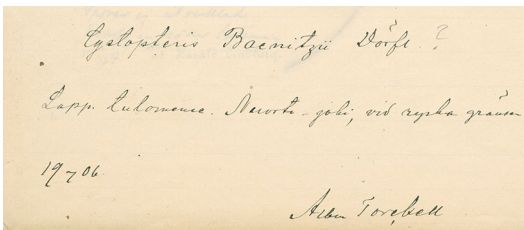 Cystopteris Baenitzii Dörfl. ?
Lapp. tulomensis. Nuorti-joki, vid ryska gränsen
19 7 06.
Albin Torckell